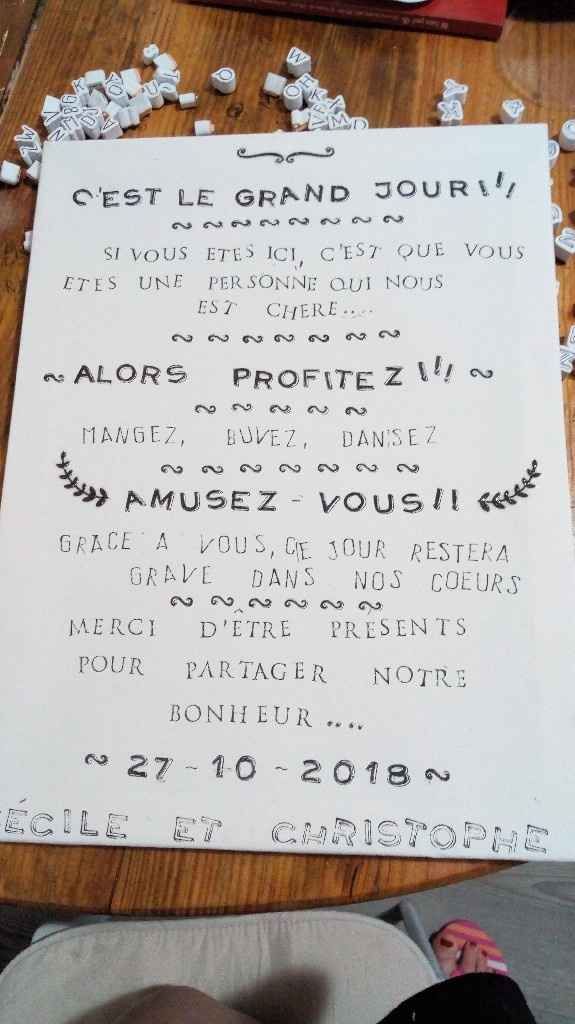 C'EST LE GRAND JOUR!!!
SI VOUS ETES ICI, C'EST QUE VOUS
ETES UNE PERSONNE QUI NOUS
EST CHERE....
ALORS PROFITEZ!!!
MANGEZ, BUVEZ, DANSEZ
AMUSEZ-VOUS!!
GRACE A VOUS, CE JOUR RESTERA
GRAVE DANS NOS COEURS
MERCI D'ÊTRE PRÉSENTS
POUR PARTAGER NOTRE
BONHEUR....
27-10-2018
CÉCILE ET CHRISTOPHE